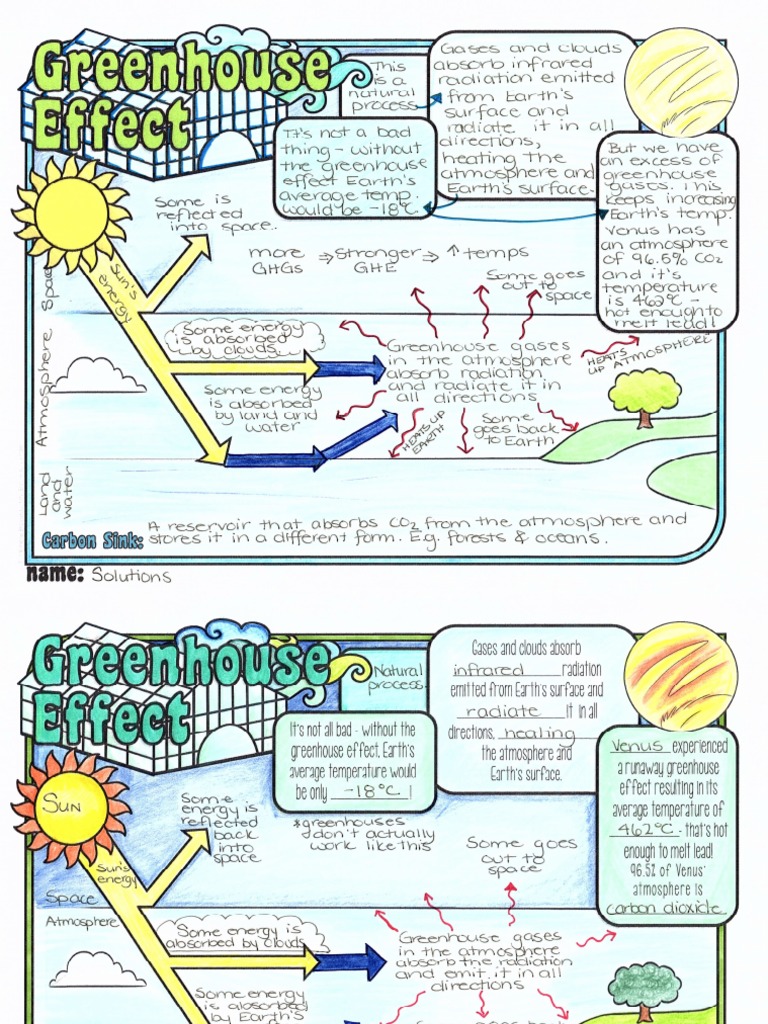 Greenhouse
Effect
This
is a
natural
process
Gases and clouds
absorb infrared
radiation emitted
from Earth's
surface and
radiate it in all
directions,
heating the
atmosphere and
Earth's surface.
It's not a bad
thing - without
the greenhouse
effect Earth's
average temp.
would be -18°C.
But we have
an excess of
greenhouse
gases. This
keeps increasing
Earth's temp.
Venus has
an atmosphere
of 96.5% CO2
and it's
temperature
is 462°C -
hot enough to
melt lead!
Some is
reflected
into space.
Sun's
energy
more ⇒ Stronger ⇒ ↑ temps
GHGs GHE
Some goes
out to
space
Space
Some energy
is absorbed
by clouds.
Greenhouse gases
in the atmosphere
absorb radiation
and radiate it in
all directions
HEATS
UP ATMOSPHERE
Atmosphere
Some energy
is absorbed
by land and
water
HEATS UP
EARTH
Some
goes back
to Earth
Land
and
water
Carbon Sink: A reservoir that absorbs CO2 from the atmosphere and
stores it in a different form. E.g. forests & oceans.
name: Solutions
Greenhouse
Effect
Natural
process
Gases and clouds absorb
infrared radiation
emitted from Earth's surface and
radiate it in all
directions, healing
the atmosphere and
Earth's surface.
It's not all bad - without the
greenhouse effect, Earth's
average temperature would
be only -18°C !
Venus experienced
a runaway greenhouse
effect resulting in its
average temperature of
462°C - that's hot
enough to melt lead!
96.5% of Venus'
atmosphere is
carbon dioxide
Sun
Some
energy is
reflected
back
into
space
*greenhouses
don't actually
work like this
Some goes
out to
space
Sun's
energy
Space
Atmosphere
Some energy is
absorbed by clouds
Greenhouse gases
in the atmosphere
absorb the radiation
and emit it in all
directions
Some energy
is absorbed
by Earth's